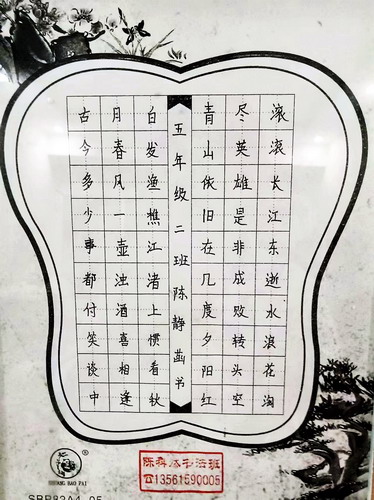 滚滚长江东逝水浪花淘
尽英雄是非成败转头空
青山依旧在几度夕阳红
五年级二班陈静书
白发渔樵江渚上惯看秋
月春风一壶浊酒喜相逢
古今多少事都付笑谈中
SHUANG BAO PAI
书法班
☎13561590005